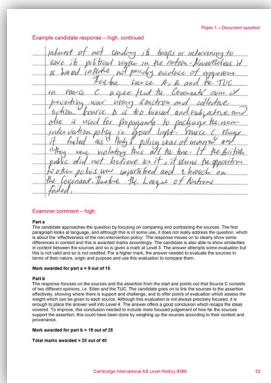 Paper 1 – Document question
Example candidate response – high, continued
interest of not sending its troops or intervening to
save its political vigor in the nation. Nevertheless it
is biased and not purely evidence of
Source A, B and the TUC
in source C agree that the Covenants' aim of
preventing war using sanctions and collective
action. Source D is too biased and subjective and
also is used for propaganda to the non-
intervention policy in good light. Source C
it failed as
violating the all the time. If the British
public did not believe in it, it the opposition
was and a breach on
the Covenant. Therefore the League of Nations
failed.
Examiner comment – high
Part a
The candidate approaches the question by focusing on comparing and contrasting the sources. The first
paragraph looks at language, and although this is of some use, it does not really address the question, which
is about the 'effectiveness of the non-intervention policy'. The response moves on to clearly show some
differences in content and this is awarded marks accordingly. The candidate is also able to show similarities
in content between the sources and so is given a mark at Level 3. The answer attempts some evaluation but
this is not valid and so is not credited. For a higher mark, the answer needed to evaluate the sources in
terms of their nature, origin and purpose and use this evaluation to compare them.
Mark awarded for part a = 9 out of 15
Part b
The response focuses on the sources and the assertion from the start and points out that Source C consists
of two different opinions, i.e. Eden and the TUC. The candidate goes on to link the sources to the assertion
effectively, showing where there is support and challenge, and to offer points of evaluation which assess the
weight which can be given to each source. Although this evaluation is not always precisely focused, it is
enough to place the answer well into Level 4. The answer offers a good conclusion which recaps the ideas
covered. To improve, this conclusion needed to include more focused judgement of how far the sources
support the assertion; this could have been done by weighing up the sources according to their content and
provenance.
Mark awarded for part b = 19 out of 25
Total marks awarded = 28 out of 40
Cambridge International AS Level History 9389
53